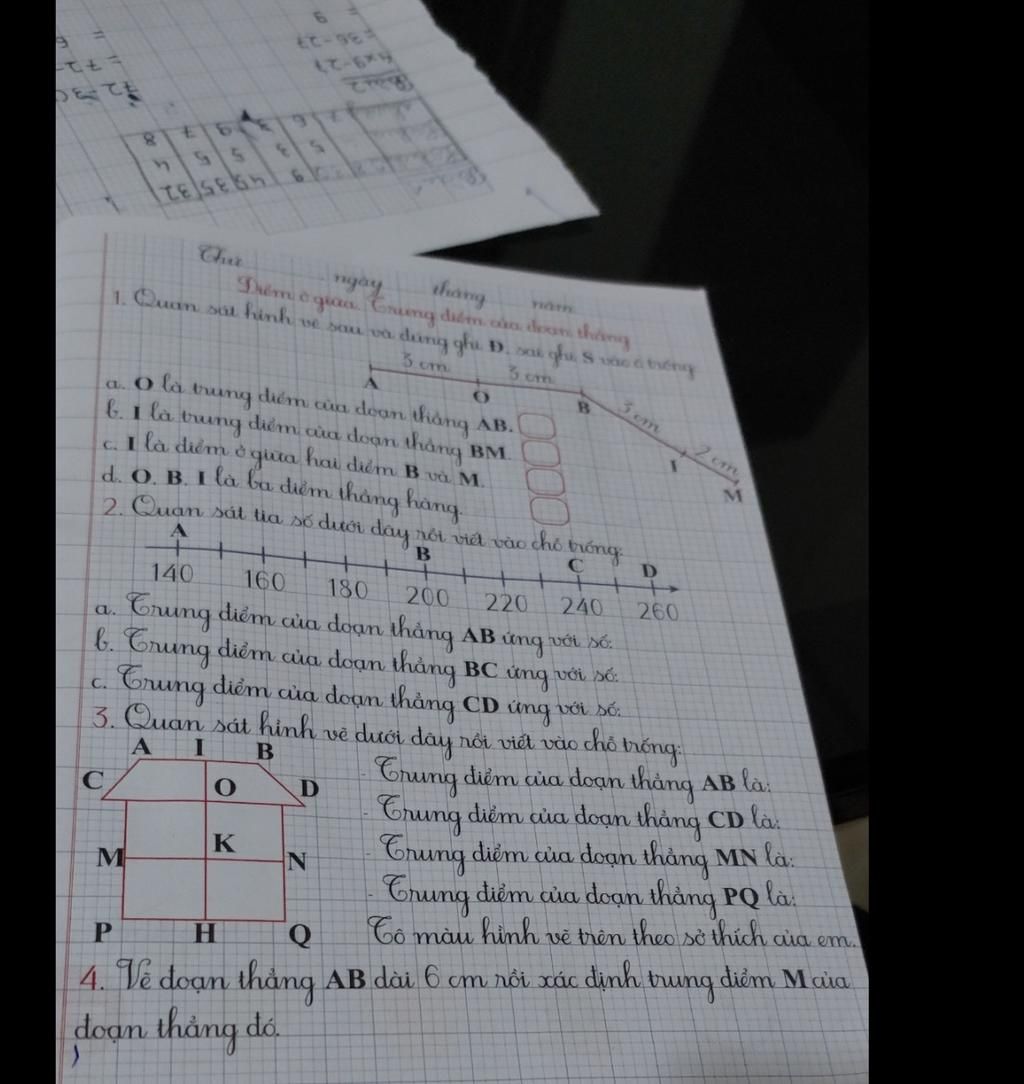 = 9
=36-27
4x9-27
72
8 7 9 3 6 7
4 5 5 3 5
32 35 45 9
Thứ ngày tháng năm
Điểm ở giữa. Trung điểm của đoạn thẳng
1. Quan sát hình vẽ sau và đúng ghi Đ, sai ghi S vào ô trống
3 cm 3 cm 3 cm 2 cm
A O B I M
a. O là trung điểm của đoạn thẳng AB.
b. I là trung điểm của đoạn thẳng BM.
c. I là điểm ở giữa hai điểm B và M.
d. O, B, I là ba điểm thẳng hàng.
2. Quan sát tia số dưới đây rồi viết vào chỗ trống:
A B C D
140 160 180 200 220 240 260
a. Trung điểm của đoạn thẳng AB ứng với số:
b. Trung điểm của đoạn thẳng BC ứng với số:
c. Trung điểm của đoạn thẳng CD ứng với số:
3. Quan sát hình vẽ dưới đây rồi viết vào chỗ trống:
A I B
C O D
M K N
P H Q
- Trung điểm của đoạn thẳng AB là:
- Trung điểm của đoạn thẳng CD là:
- Trung điểm của đoạn thẳng MN là:
- Trung điểm của đoạn thẳng PQ là:
Tô màu hình vẽ trên theo sở thích của em.
4. Vẽ đoạn thẳng AB dài 6 cm rồi xác định trung điểm M của
đoạn thẳng đó.